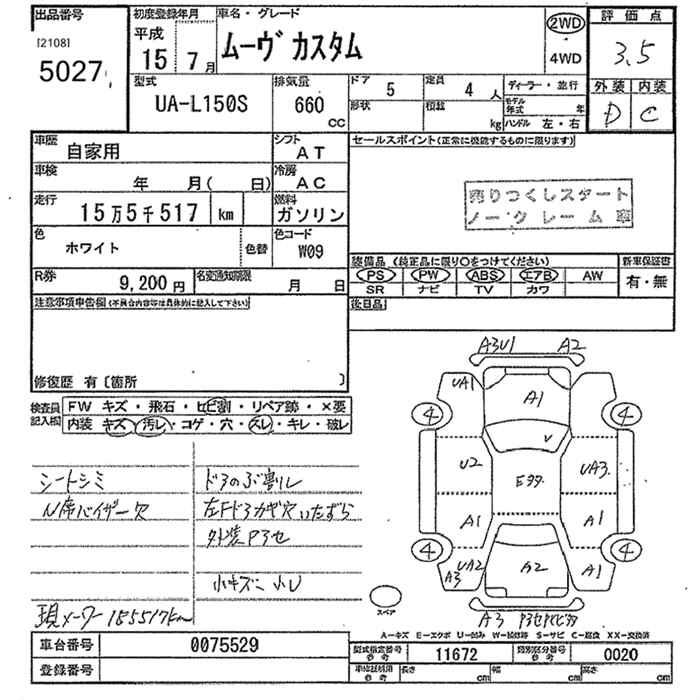 出品番号
[2108]
5027
初度登録年月
平成
15 7月
車名・グレード
ムーヴ カスタム
2WD
4WD
評価点
3.5
外装 内装
D C
型式
UA-L150S
排気量
660 CC
ドア 5
定員 4 人
形状
積載 kg
ディーラー・並行
モデル年式 年
ハンドル 左・右
車歴
自家用
シフト
AT
セールスポイント(正常に機能するものに限ります)
車検 年 月( 日)
冷房
AC
売りつくしスタート
ノークレーム車
走行 15万5千517 km
燃料
ガソリン
色 ホワイト 色替
色コード
W09
装備品 (純正品に限り○をつけてください)
新車保証書
PS PW ABS エアB AW
有・無
SR ナビ TV カワ
R券 9,200円
名変通知期限 月 日
後日品
注意事項申告欄(不具合内容等は具体的に記入して下さい)
修復歴 有〔箇所 〕
検査員記入欄
FW キズ・飛石・ヒビ割・リペア跡・×要
内装 キズ・汚レ・コゲ・穴・スレ・キレ・破レ
シートシミ
N席バイザー欠
ドアのぶ割レ
左Fドアカギ穴いたずら
外装Pアセ
小キズ 小U
現メーター155517km
A3U1 A2
UA1 A1
4 4
V
U2 E99 UA3
A1 A1
4 4
UA2 A3 A2 A1
スペア
A3
A-キズ E-エクボ U-凹み W-補修跡 S-サビ C-腐食 XX-交換済
車台番号 0075529
型式指定番号 参考 11672
類別区分番号 参考 0020
登録番号
長さ cm 幅 cm 高さ cm